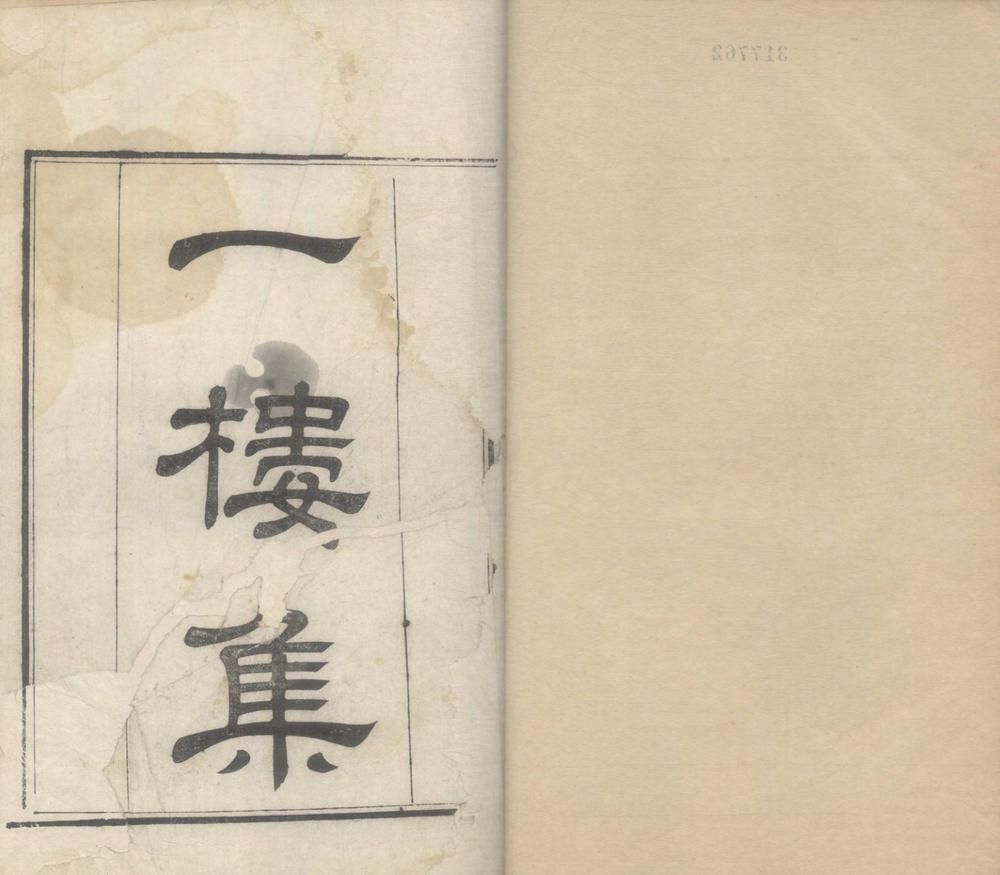 317762
一樓集